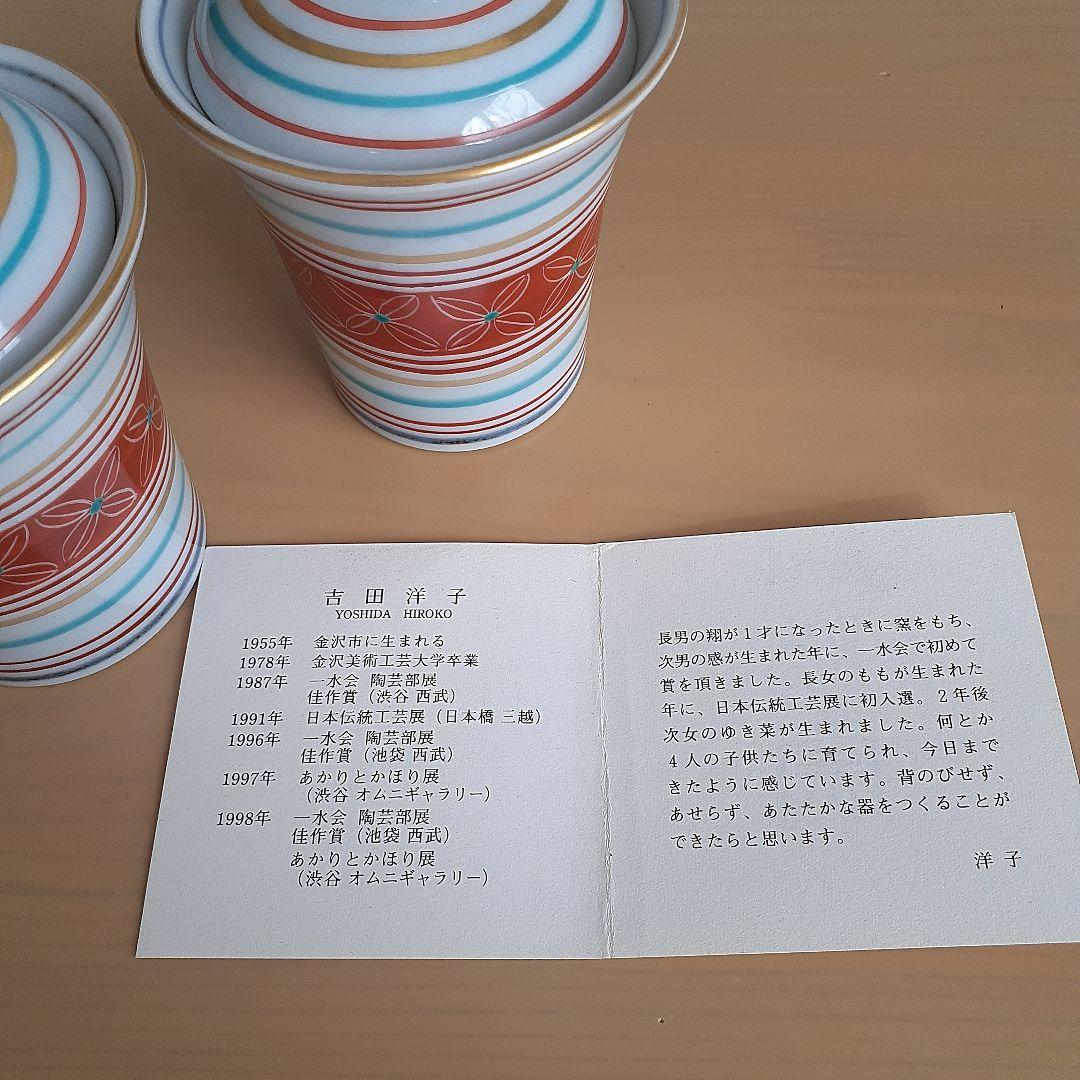 吉田洋子
YOSHIDA HIROKO
1955年 金沢市に生まれる
1978年 金沢美術工芸大学卒業
1987年 一水会 陶芸部展
佳作賞（渋谷 西武）
1991年 日本伝統工芸展（日本橋 三越）
1996年 一水会 陶芸部展
佳作賞（池袋 西武）
1997年 あかりとかほり展
（渋谷 オムニギャラリー）
1998年 一水会 陶芸部展
佳作賞（池袋 西武）
あかりとかほり展
（渋谷 オムニギャラリー）
長男の翔が1才になったときに窯をもち、
次男の感が生まれた年に、一水会で初めて
賞を頂きました。長女のももが生まれた
年に、日本伝統工芸展に初入選。2年後
次女のゆき菜が生まれました。何とか
4人の子供たちに育てられ、今日まで
きたように感じています。背のびせず、
あせらず、あたたかな器をつくることが
できたらと思います。
洋子